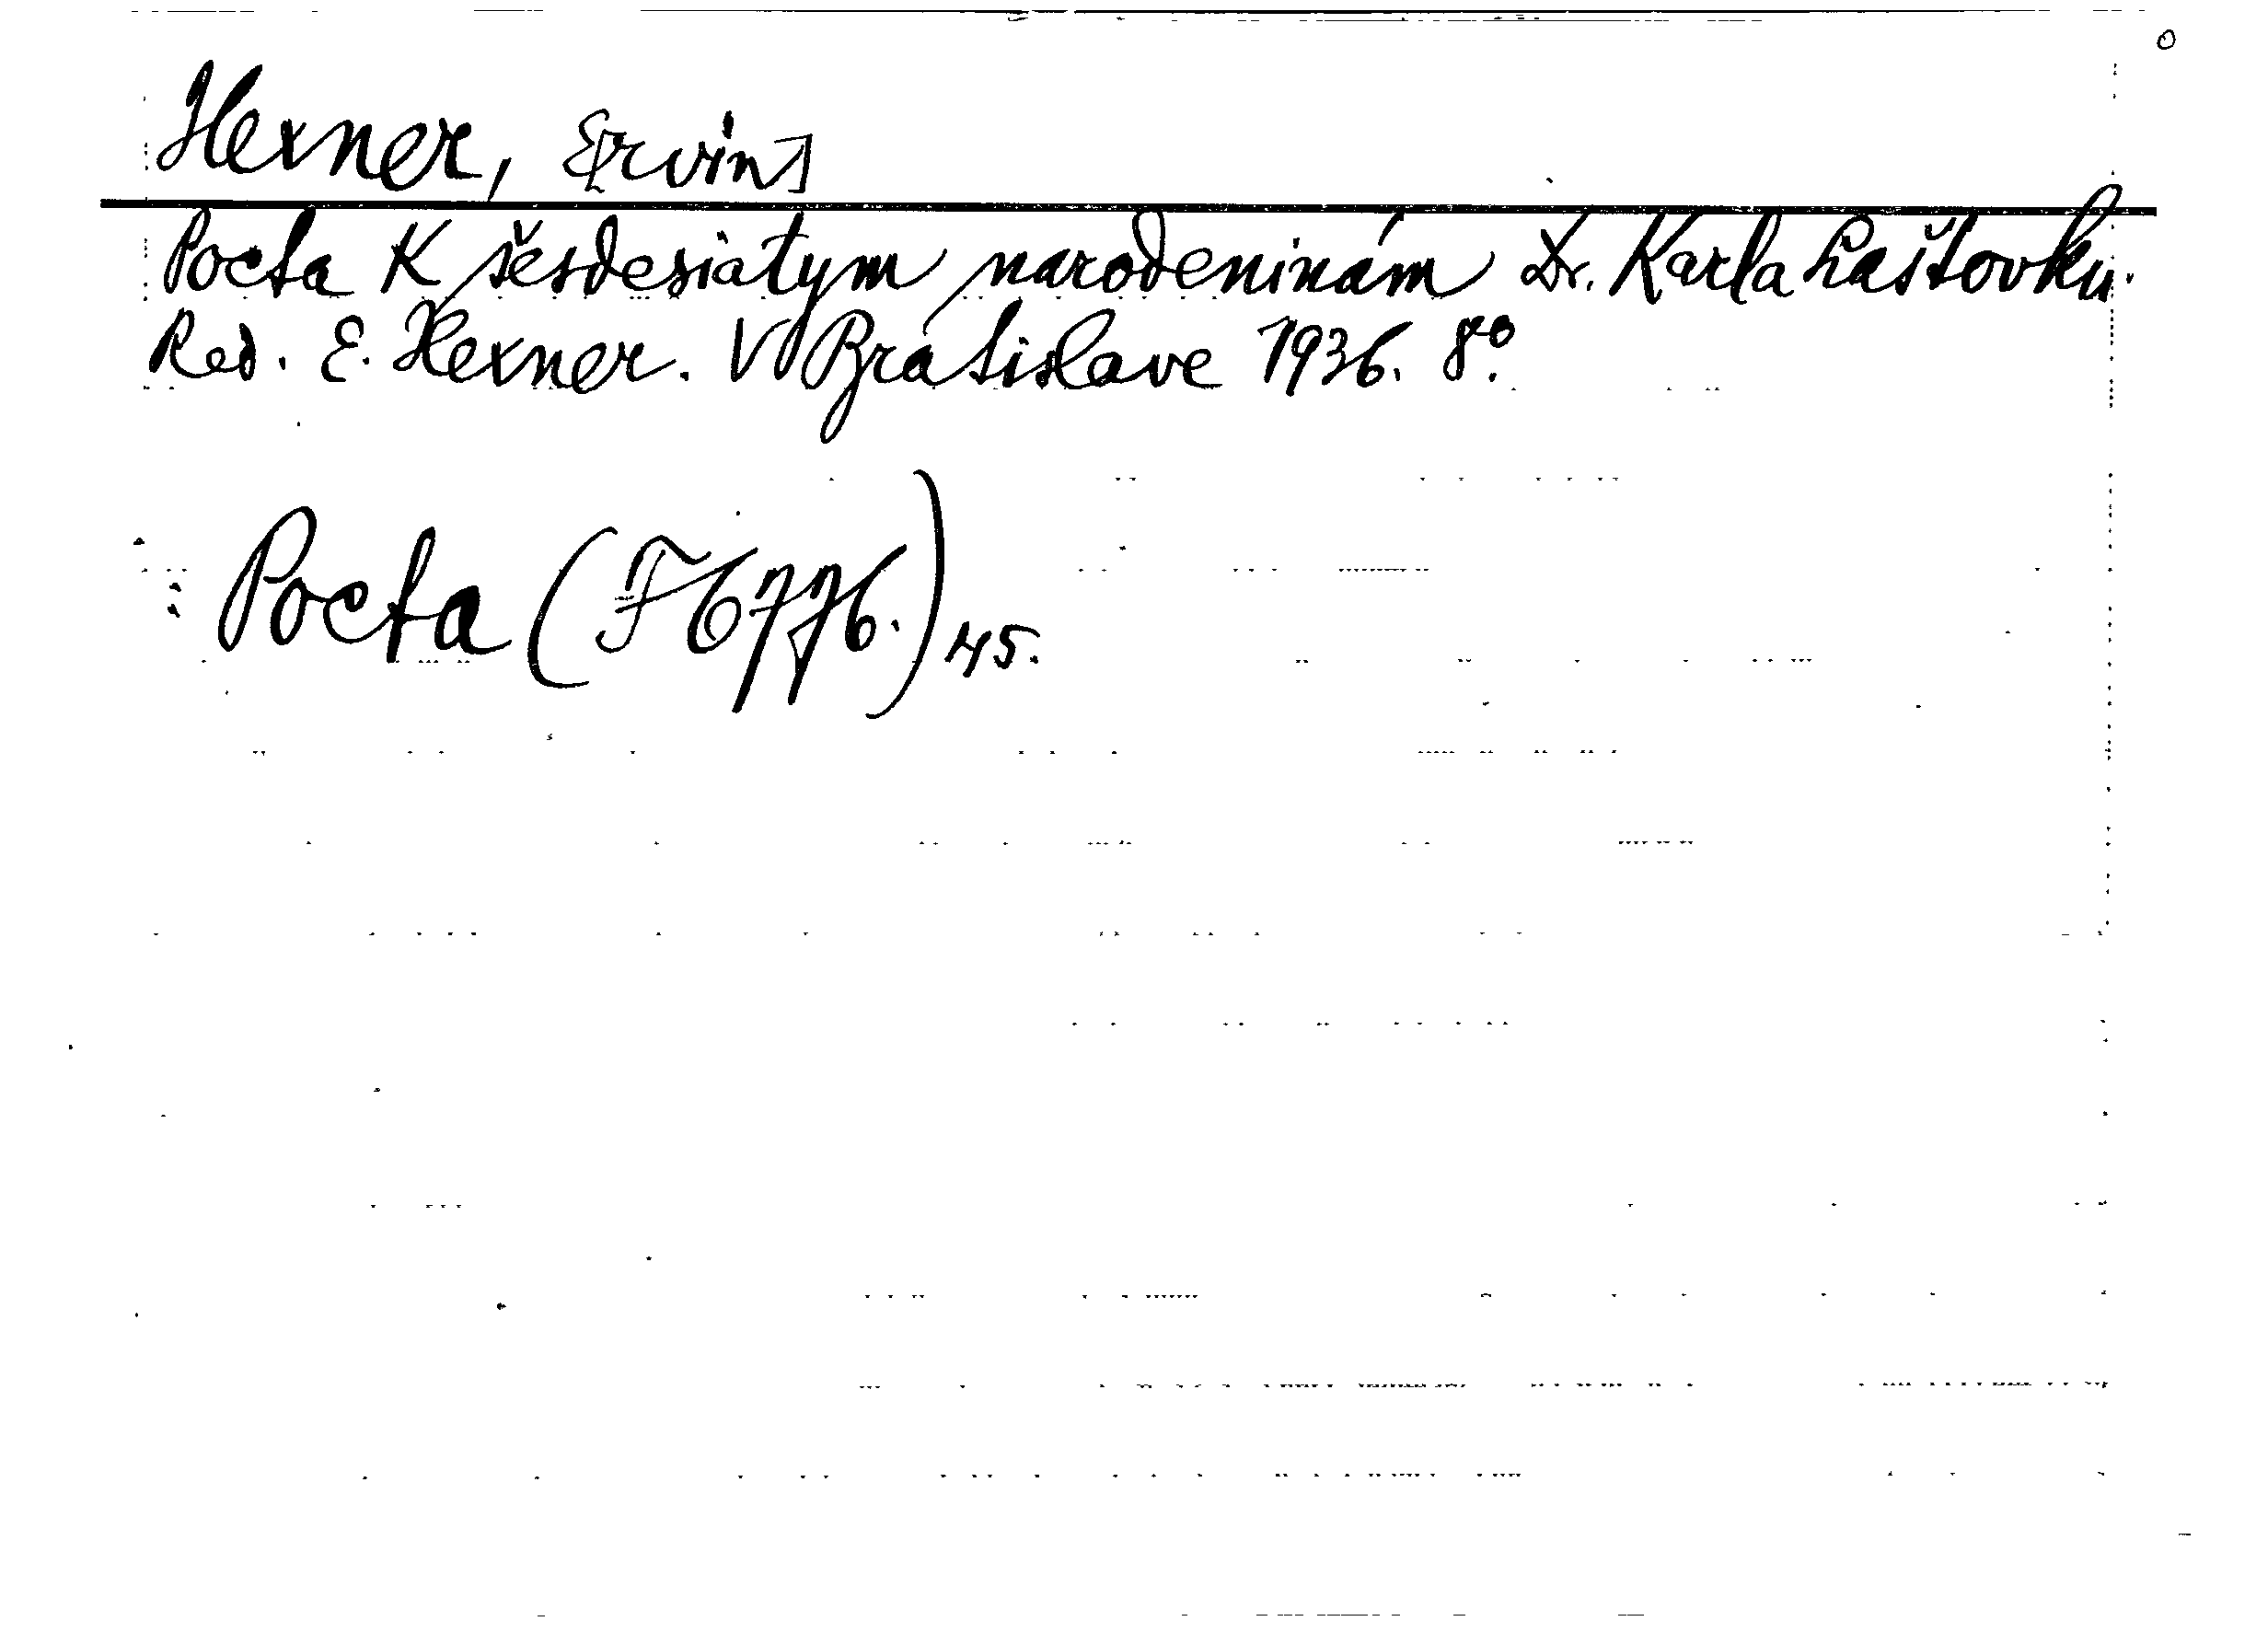 Hexner, E[rvin]
Pocta K šesdesiatym narodeninám Dr. Karla Laštovku.
Red. E. Hexner. V Bratislave 1936. 8°.
Pocta (F 6776.) 45.